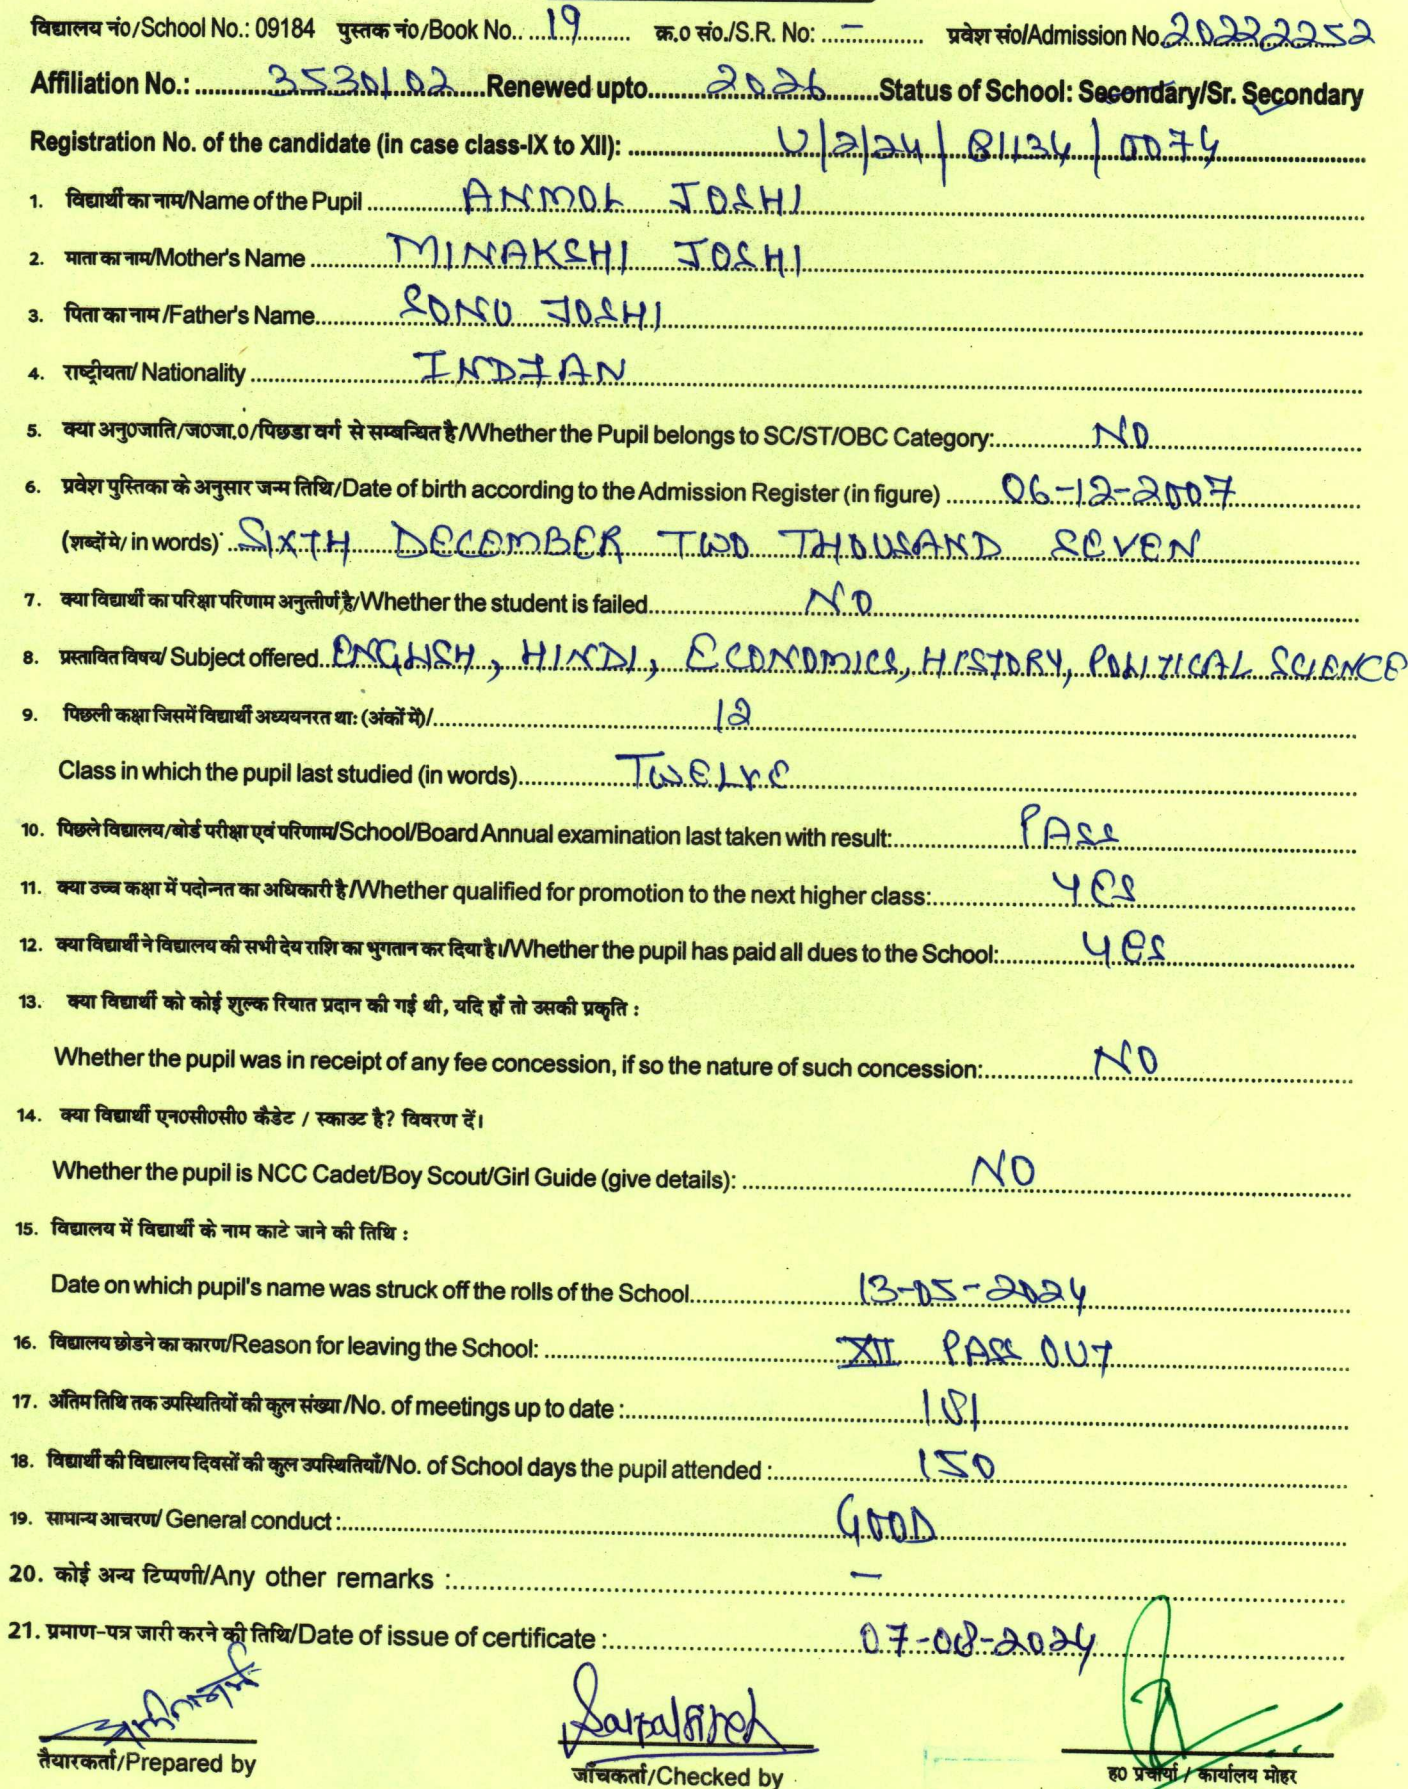 विद्यालय नं०/School No.: 09184 पुस्तक नं०/Book No.. ...19.......... क्र.० सं०./S.R. No: ...–................. प्रवेश सं०/Admission No. 20222252
Affiliation No.: .............3530102......Renewed upto.........2026.........Status of School: Secondary/Sr. Secondary
Registration No. of the candidate (in case class-IX to XII): ....................U/2/24/81134/0074....................
1. विद्यार्थी का नाम/Name of the Pupil ...............ANMOL JOSHI...............
2. माता का नाम/Mother's Name ............MINAKSHI JOSHI...............
3. पिता का नाम /Father's Name...............SONU JOSHI...............
4. राष्ट्रीयता/ Nationality ....................INDIAN....................
5. क्या अनु०जाति/ज०जा.०/पिछडा वर्ग से सम्बन्धित है/Whether the Pupil belongs to SC/ST/OBC Category:...............NO...............
6. प्रवेश पुस्तिका के अनुसार जन्म तिथि/Date of birth according to the Admission Register (in figure) .........06-12-2007.........
(शब्दों मे/ in words) ..SIXTH DECEMBER TWO THOUSAND SEVEN...............
7. क्या विद्यार्थी का परिक्षा परिणाम अनुत्तीर्ण है/Whether the student is failed....................NO....................
8. प्रस्तावित विषय/ Subject offered..ENGLISH, HINDI, ECONOMICS, HISTORY, POLITICAL SCIENCE
9. पिछली कक्षा जिसमें विद्यार्थी अध्ययनरत थाः (अंकों में)/....................12....................
Class in which the pupil last studied (in words)...............TWELVE...............
10. पिछले विद्यालय/बोर्ड परीक्षा एवं परिणाम/School/Board Annual examination last taken with result:...............PASS...............
11. क्या उच्च कक्षा में पदोन्नत का अधिकारी है/Whether qualified for promotion to the next higher class:...............YES...............
12. क्या विद्यार्थी ने विद्यालय की सभी देय राशि का भुगतान कर दिया है।/Whether the pupil has paid all dues to the School:...............YES...............
13. क्या विद्यार्थी को कोई शुल्क रियात प्रदान की गई थी, यदि हाँ तो उसकी प्रकृति :
Whether the pupil was in receipt of any fee concession, if so the nature of such concession:...............NO...............
14. क्या विद्यार्थी एन०सी०सी० कैडेट / स्काउट है? विवरण दें।
Whether the pupil is NCC Cadet/Boy Scout/Girl Guide (give details): ....................NO....................
15. विद्यालय में विद्यार्थी के नाम काटे जाने की तिथि :
Date on which pupil's name was struck off the rolls of the School....................13-05-2024....................
16. विद्यालय छोडने का कारण/Reason for leaving the School: ....................XII PASS OUT....................
17. अंतिम तिथि तक उपस्थितियों की कुल संख्या /No. of meetings up to date :....................181....................
18. विद्यार्थी की विद्यालय दिवसों की कुल उपस्थितियाँ/No. of School days the pupil attended :...............150...............
19. सामान्य आचरण/ General conduct :....................GOOD....................
20. कोई अन्य टिप्पणी/Any other remarks :....................–....................
21. प्रमाण-पत्र जारी करने की तिथि/Date of issue of certificate :....................07-08-2024....................
तैयारकर्ता/Prepared by जाँचकर्ता/Checked by ह० प्रचार्या / कार्यालय मोहर